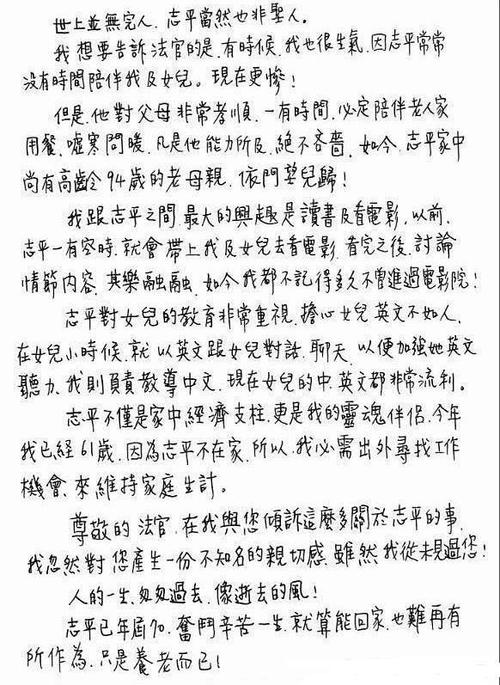 世上並無完人，志平當然也非聖人。
我想要告訴法官的是，有時候，我也很生氣，因志平常常
沒有時間陪伴我及女兒。現在更慘！
但是，他對父母非常孝順，一有時間，必定陪伴老人家
用餐，噓寒問暖，凡是他能力所及，絕不吝嗇，如今，志平家中
尚有高齡94歲的老母親，依門望兒歸！
我跟志平之間，最大的興趣是讀書及看電影，以前，
志平一有空時，就會帶上我及女兒去看電影，看完之後，討論
情節內容，其樂融融，如今我都不記得多久不曾進過電影院！
志平對女兒的教育非常重視，擔心女兒英文不如人，
在女兒小時候，就以英文跟女兒對話，聊天，以便加強她英文
聽力，我則負責教導中文，現在女兒的中，英文都非常流利。
志平不僅是家中經濟支柱，更是我的靈魂伴侶，今年
我已經61歲，因為志平不在家，所以，我必需出外尋找工作
機會，來維持家庭生計。
尊敬的法官，在我與您傾訴這麼多關於志平的事，
我忽然對您產生一份不知名的親切感，雖然我從未見過您！
人的一生，匆匆過去，像逝去的風！
志平已年屆70，奮鬥辛苦一生，就算能回家，也難再有
所作為，只是養老而已！